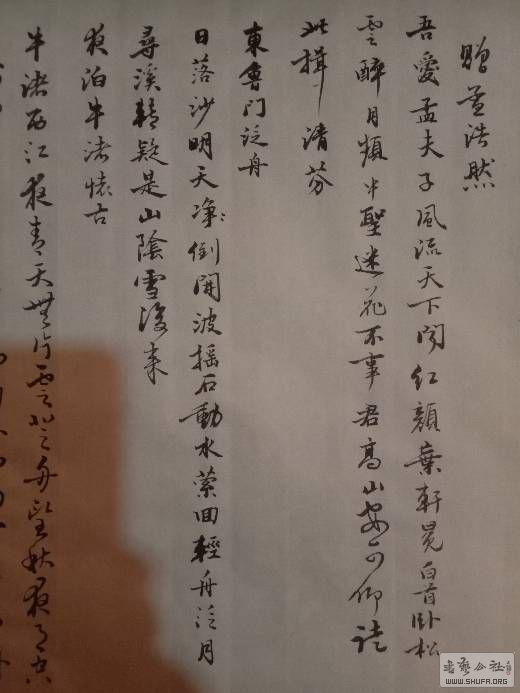 贈孟浩然
吾愛孟夫子風流天下聞紅顏棄軒冕白首卧松
雲醉月頻中聖迷花不事君高山安可仰徒
此揖清芬
東魯門泛舟
日落沙明天净倒開波摇石動水縈回輕舟泛月
尋溪轉疑是山陰雪後来
夜泊牛渚懷古
牛渚西江夜青天無片雲舟望秋夜月空
書藝公社
WWW.SHUFA.ORG